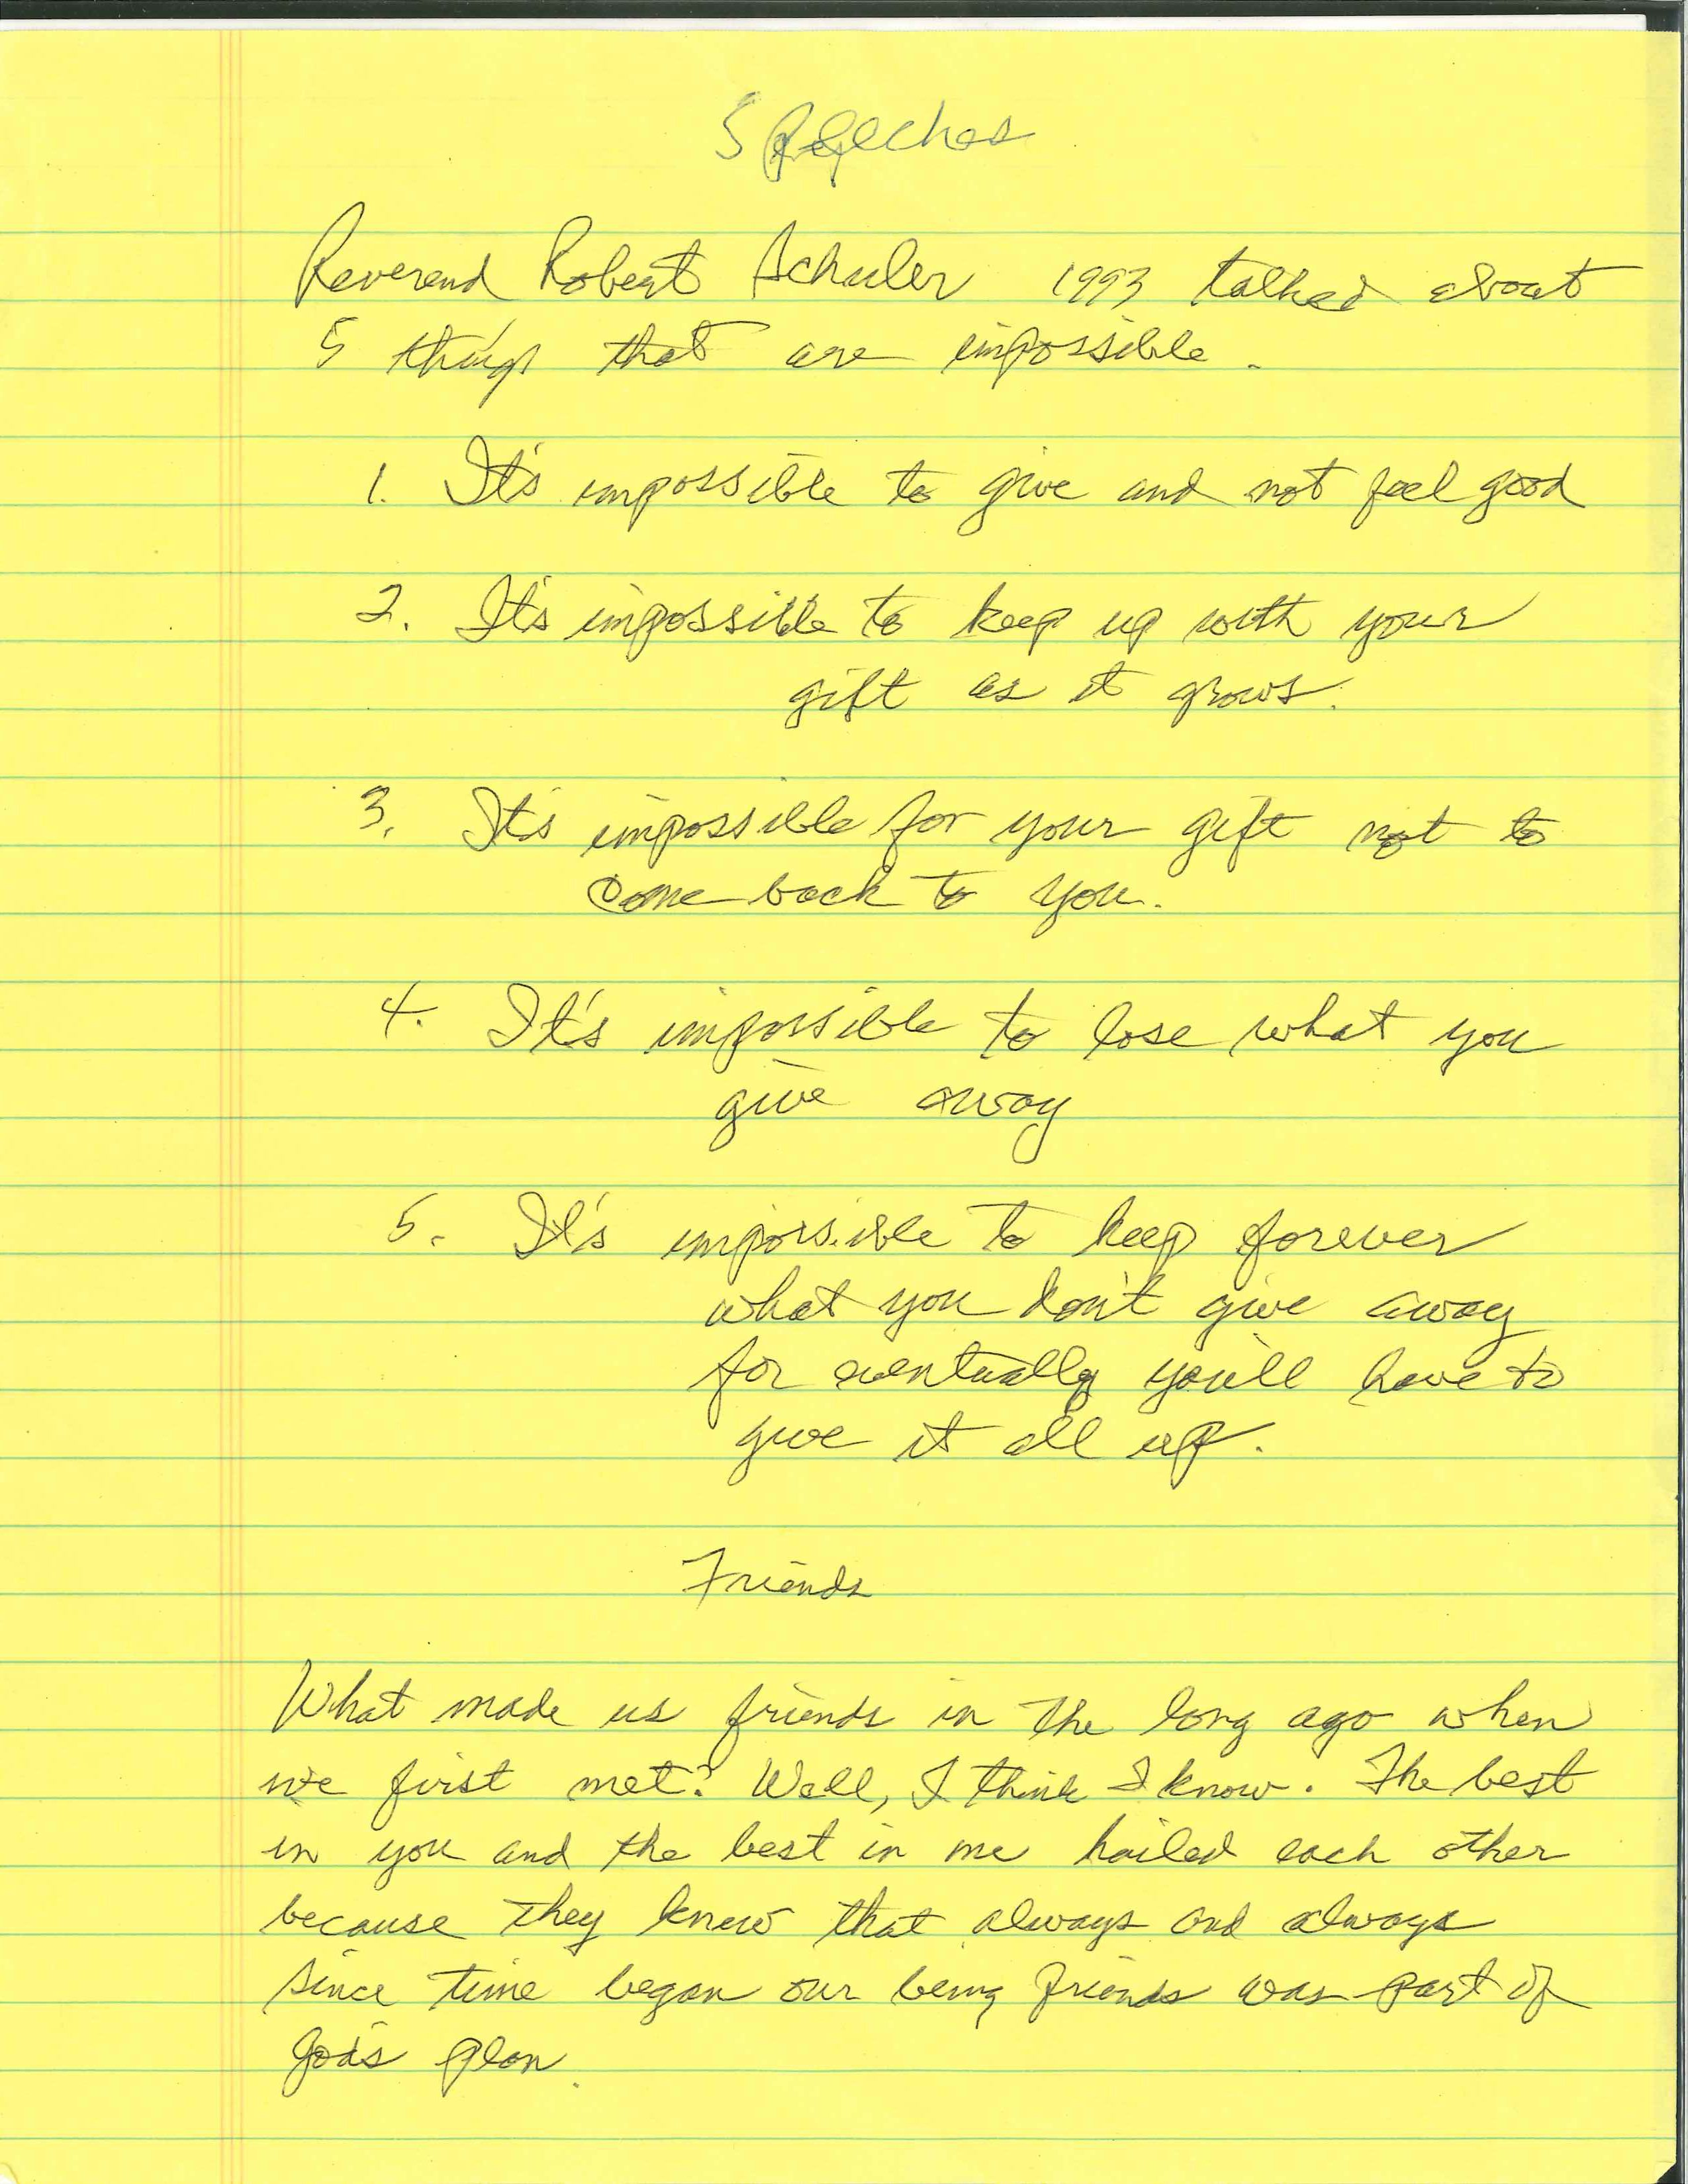 Speeches
Reverend Robert Schuler 1993 talked about
5 things that are impossible.
1. It's impossible to give and not feel good
2. It's impossible to keep up with your
gift as it grows.
3. It's impossible for your gift not to
come back to you.
4. It's impossible to lose what you
give away
5. It's impossible to keep forever
what you don't give away
for eventually you'll have to
give it all up.
Friends
What made us friends in the long ago when
we first met? Well, I think I know. The best
in you and the best in me hailed each other
because they knew that always and always
since time began our being friends was part of
God's plan.